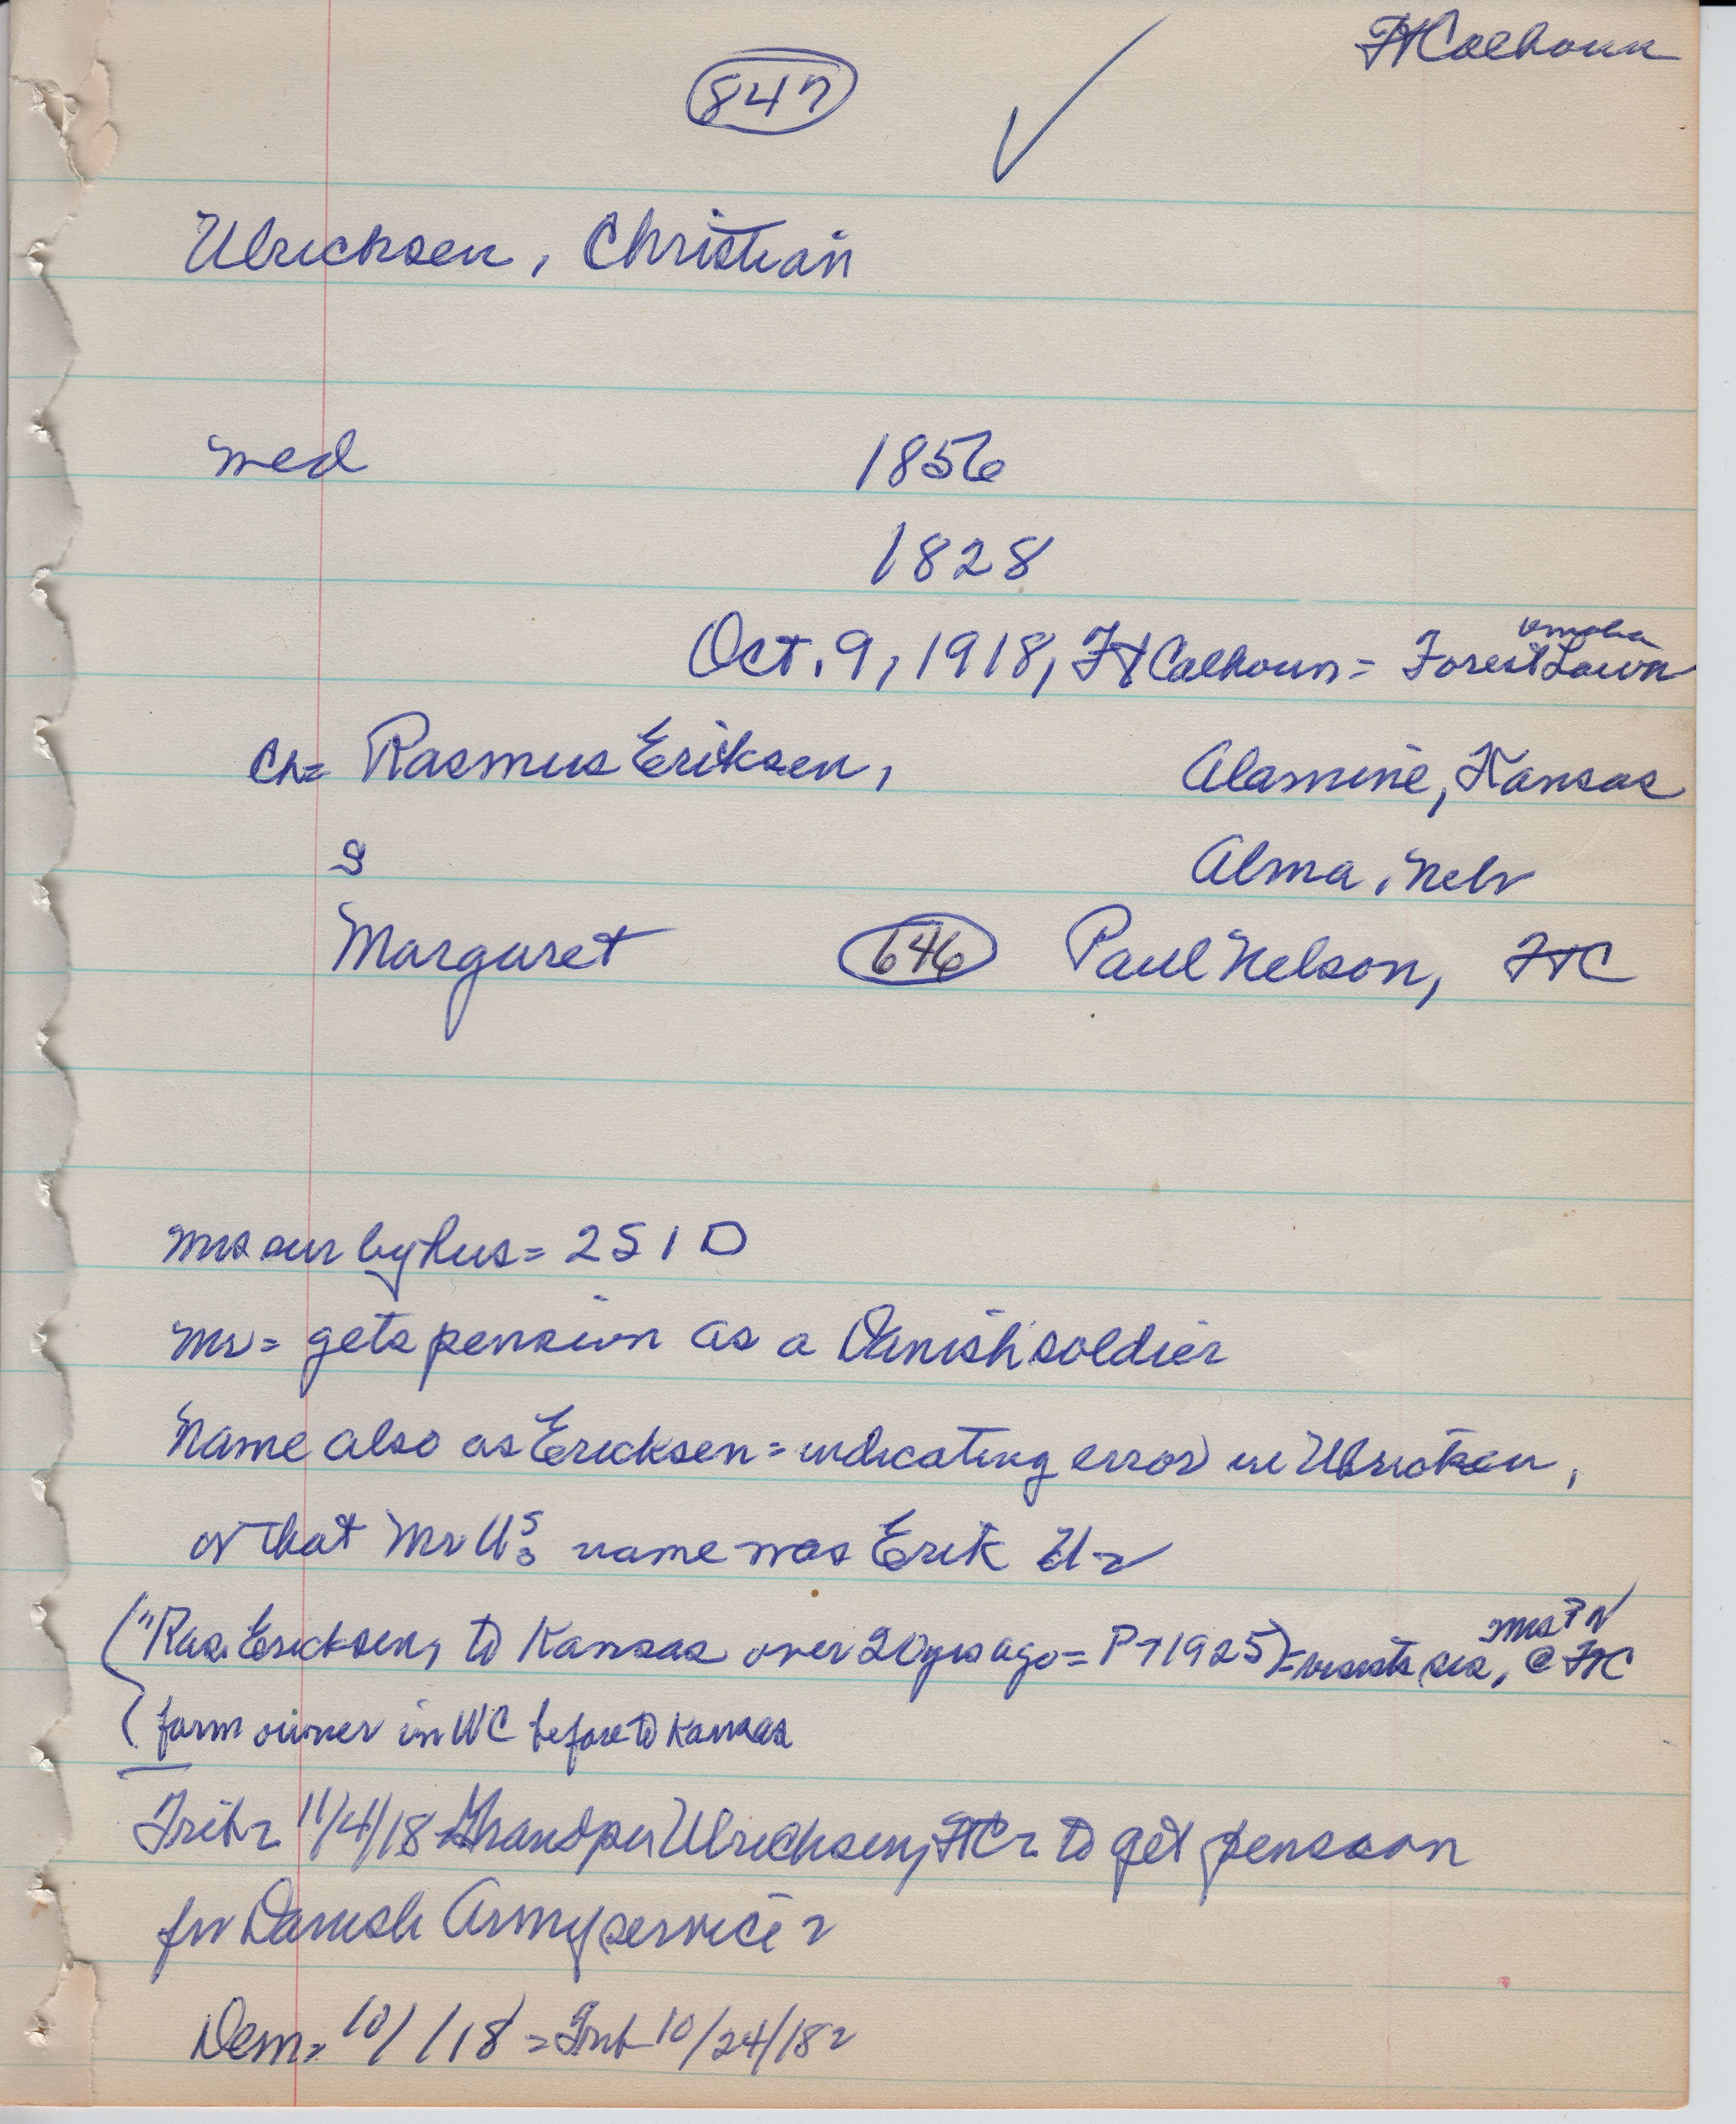 Ft Calhoun
847 ✓
Ulricksen, Christian
med 1856
1828
Omaha
Oct. 9, 1918, Ft Calhoun = Forest Lawn
Ch= Rasmus Eriksen, Alamine, Kansas
S Alma, Nebr
Margaret 646 Paul Nelson, FtC
Mrs sur by hus = 2 S 1 D
Mr = gets pension as a Danish soldier
Name also as Ericksen = indicating error in Ulricksen,
or that Mr U's name was Erik U
Mrs P N
("Ras. Ericksen, to Kansas over 20 yrs ago = PT 1925) = visits sis, @ FtC
(farm owner in WC before to Kansas
Trib 11/4/18 Grandpa Ulricksen, FtC to get pension
for Danish Army service
Dem = 10/ /18 = Trib 10/24/18